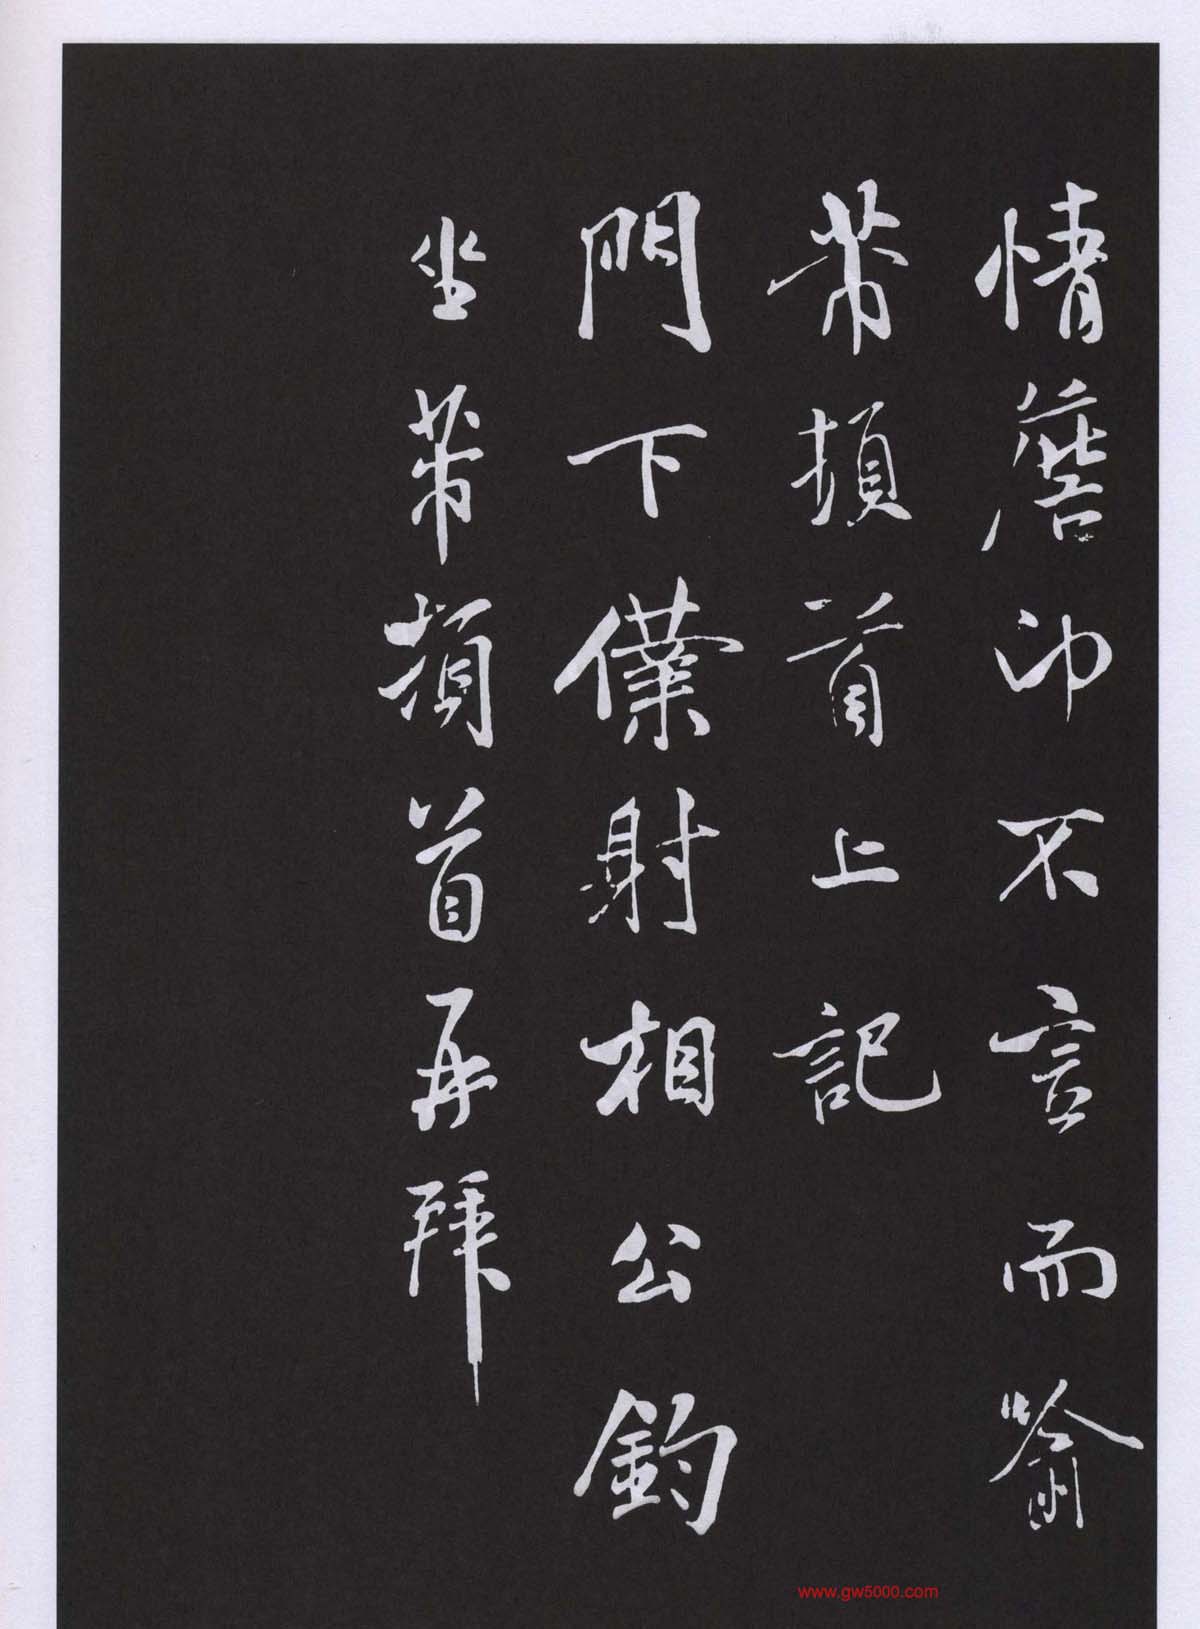 情詹卬不言而喻
芾頓首上記
門下僕射相公鈞
坐芾頓首再拜
www.gw5000.com